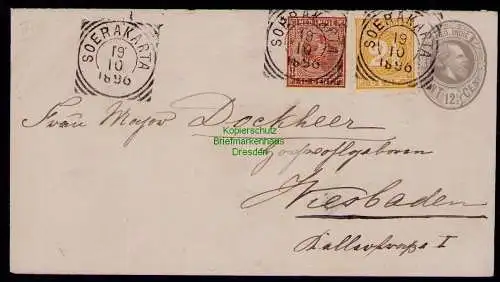 SOERAKARTA
19
10
1896
SOERAKARTA
19
10
1896
SOERAKARTA
19
10
1896
NED. INDIE
12½
Frau Major Dockheer
Kopierschutz
Briefmarkenhaus
Dresden
Hochwohlgeboren
Wiesbaden
I